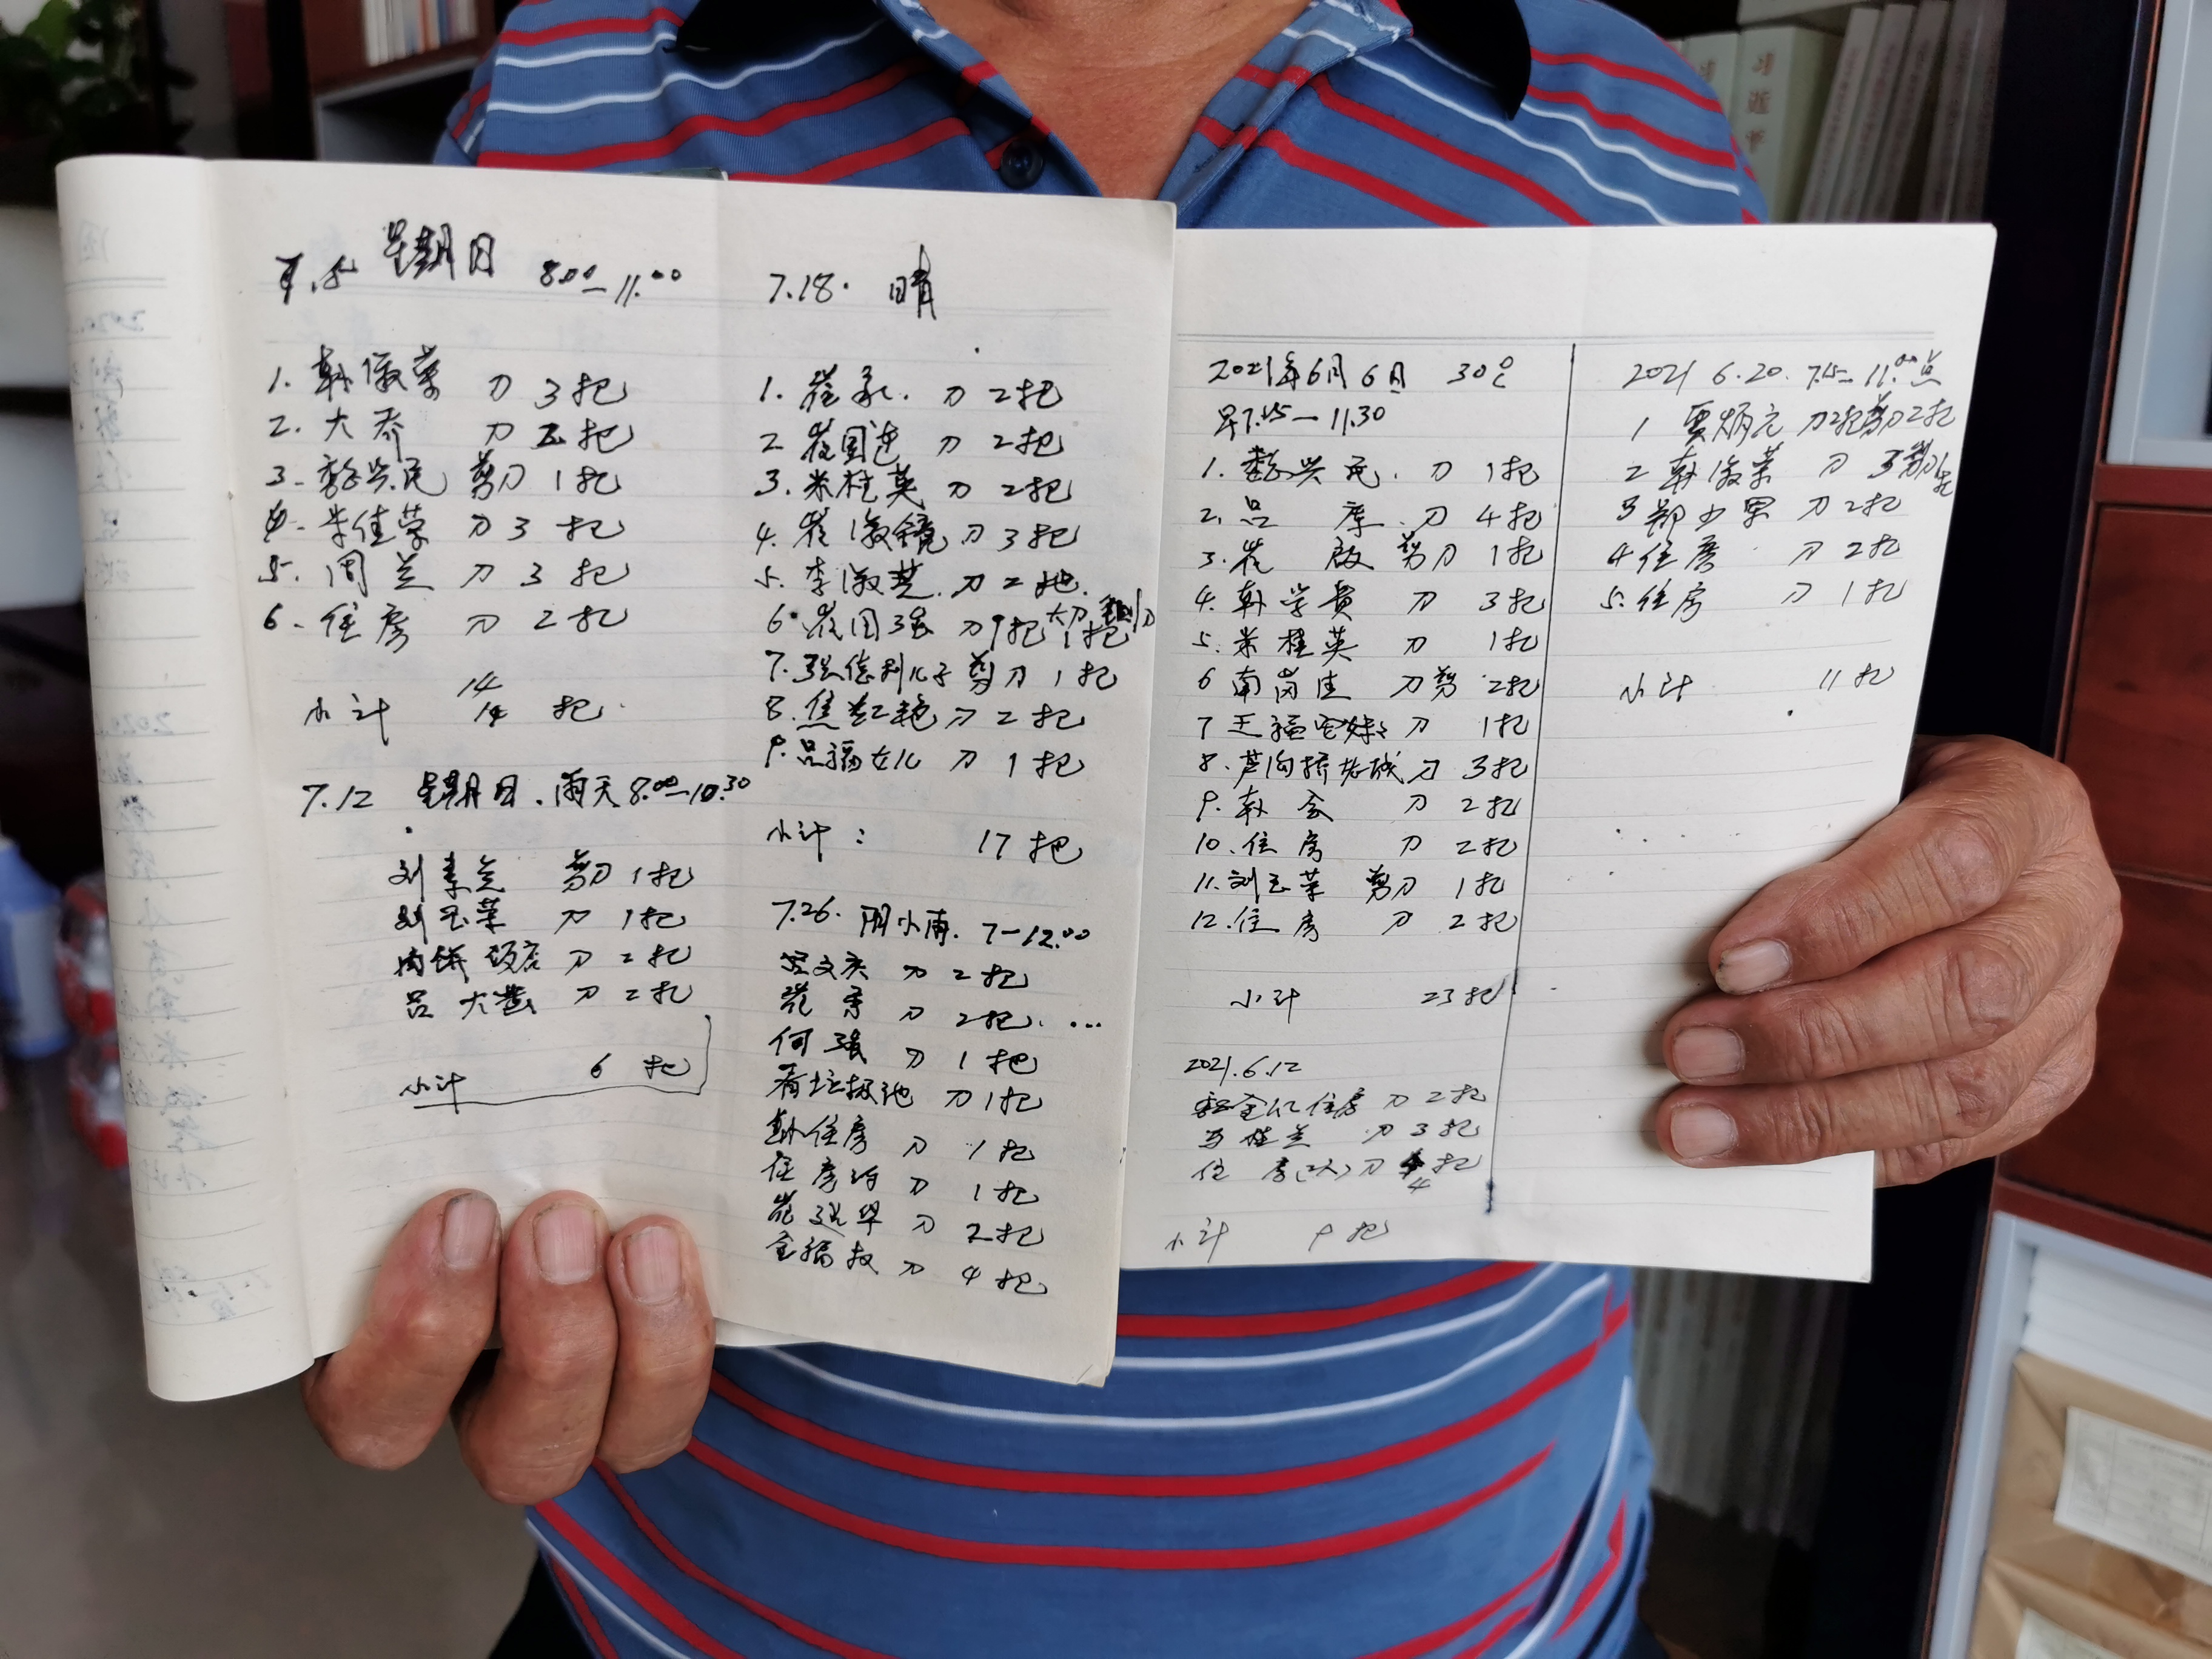 7.5 星期日 8.00—11.00
1. 韩俶荣 刀 3把
2. 大乔 刀 2把
3. 李兴民 剪刀 1把
4. 朱佳荣 刀 3把
5. 周兰 刀 3把
6. 住房 刀 2把
14
小计 14 把
7.12 星期日.雨天 8.00—10.30
刘素兰 剪刀 1把
刘玉荣 刀 1把
肉饼饭店 刀 2把
吕大 刀 2把
小计 6 把
7.18. 晴
1. 崔永. 刀 2把
2. 崔国建 刀 2把
3. 米桂英 刀 2把
4. 崔俶镜 刀 3把
5. 李淑芝. 刀 2把.
6. 崔国强 刀 1把 大刀 1把
7. 张德利儿子 剪刀 1把
8. 焦红艳 刀 2把
9. 吕福女儿 刀 1把
小计: 17把
7.26. 阴小雨. 7—12.00
刀 2把
崔秀 刀 2把. ...
何强 刀 1把
看垃圾池 刀 1把
韩住房 刀 1把
住房 刀 1把
崔延华 刀 2把
金福权 刀 4把
2021年6月6日 30℃
早7.15—11.30
1. 李兴民. 刀 1把
2. 吕 库. 刀 4把
3. 崔 剪刀 1把
4. 韩学贵 刀 3把
5. 米桂英 刀 1把
6 南岗佳 刀剪 2把
7 王福 刀 1把
8. 芦沟桥 刀 3把
9. 韩 刀 2把
10. 住房 刀 2把
11. 刘玉荣 剪刀 1把
12. 住房 刀 2把
小计 23把
2021.6.12
住房 刀 2把
马桂兰 刀 3把
住 房 刀 4把
小计 9把
2021 6.20. 7.15—11.00点
1 贾炳元 刀2把剪刀2把
2 韩俶荣 刀 3 剪刀1把
3 郑少军 刀 2把
4 住房 刀 2把
5. 住房 刀 1把
小计 11把
习近平